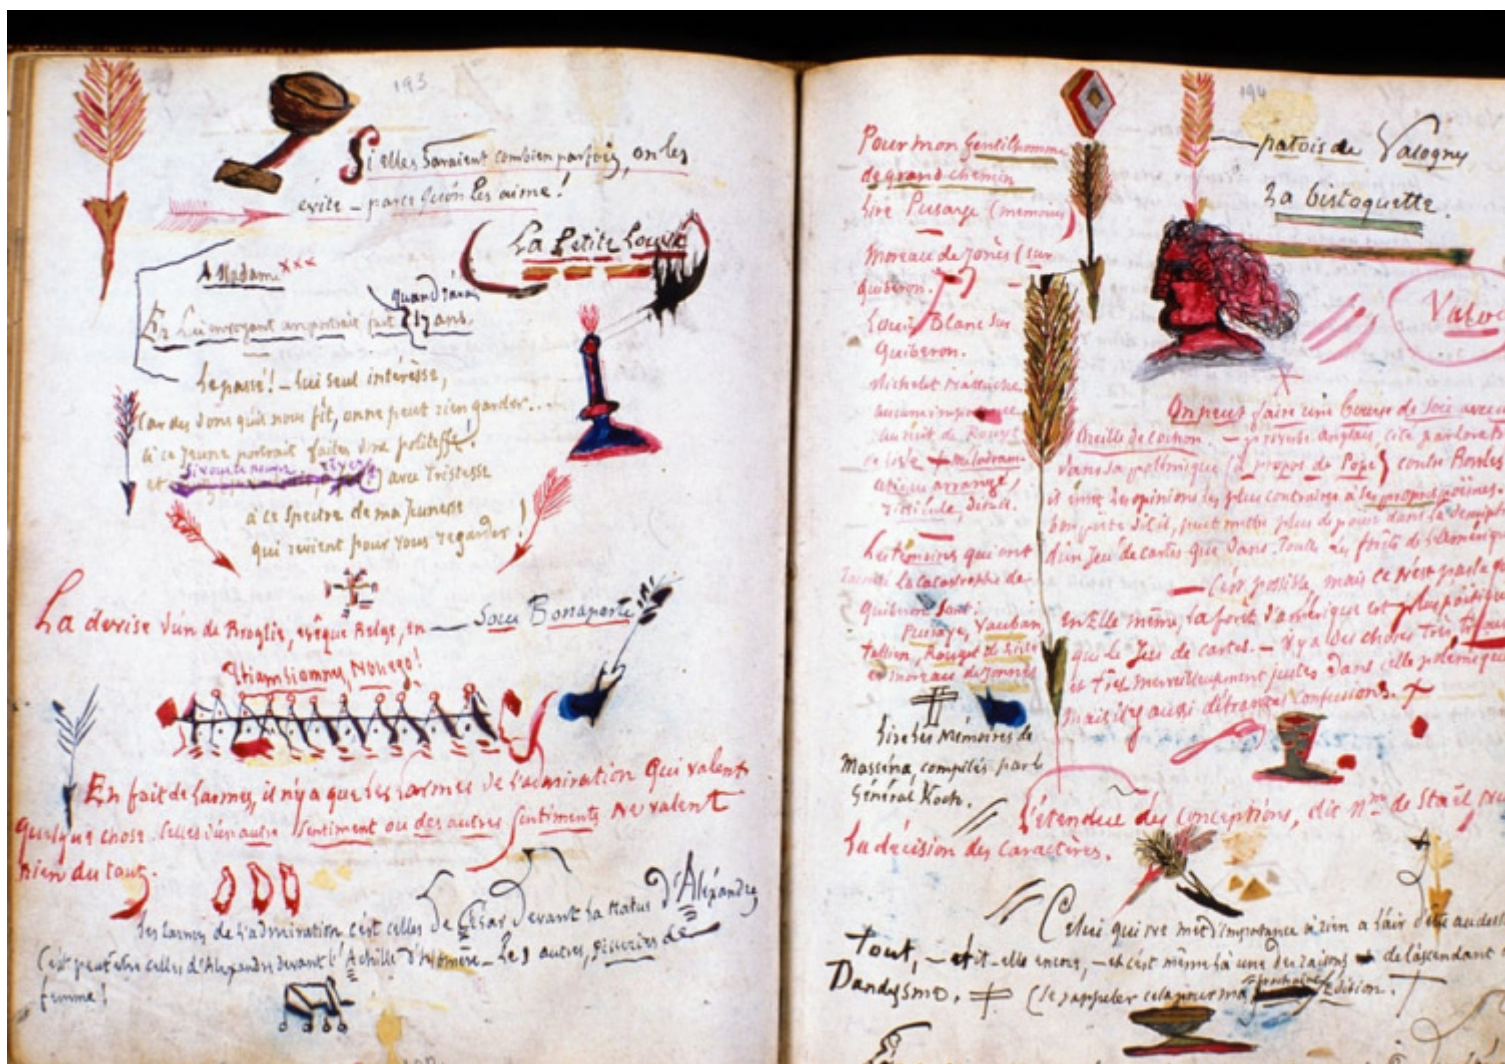 193
Si elles savaient combien parfois, on les
évite – parce qu'on les aime !
La Petite Louise
A Madame xxx
quand j'avais
En lui envoyant un portrait fait à 17 ans.
Le passé ! – lui seul intéresse,
Car des dons qu'il nous fit, on ne peut rien garder...
à ce jeune portrait faites une politesse !
et avec Tristesse
à ce spectre de ma Jeunesse
qui revient pour vous regarder !
La devise d'un de Broglie, évêque Belge, en — sous Bonaparte
Etiamsi omnes, Non ego !
En fait de larmes, il n'y a que les larmes de l'admiration qui valent
quelque chose. Celles d'un autre sentiment ou des autres sentiments ne valent
rien du tout.
Les larmes de l'admiration c'est celles de César devant la statue d'Alexandre,
C'est peut être celles d'Alexandre devant l'Achille d'Homère – Les autres, pisseries de
femme !
194
Pour mon gentilhomme
de grand chemin
Lire Puisaye (mémoires)
Moreau de Jonès (sur
Quiberon.
Louis Blanc sur
Quiberon.
Michelet n'attache
aucune importance
au récit de Rouget
de Lisle mélodrame
arrangé,
ridicule,
Les témoins qui ont
la catastrophe de
Quiberon sont.
Puisaye, Vauban
Tallien, Rouget de Lisle
et moreau de Jonnes
Lire les Mémoires de
Masséna, compilés par le
Général Koch.
patois de Valognes
La bistoquette.
Valo
On peut faire une bourse de soie avec
Oreille de cochon. – proverbe anglais, cité par
dans sa polémique (à propos de Pope) contre Bowles
et émet les opinions les plus contraires à ses propres poèmes.
bon poète dit il, peut mettre plus de poésie dans
d'un Jeu de cartes que dans toutes les forêts de l'Amérique
– C'est possible, mais ce n'est pas le
en Elle même, la forêt d'amérique est plus poétique
que le Jeu de cartes. – il y a des choses très,
et très merveilleusement justes dans cette polémique
mais il y a aussi d'étranges confusions.
L'étendue des conceptions, dit Mme de Staël
la décision des caractères.
Celui qui ne met d'importance à rien a l'air d'être au dess
tout, – dit-elle encore, – et c'est même là une des raisons de l'ascendant
Dandysme. (se rappeler cela pour ma prochaine Edition.